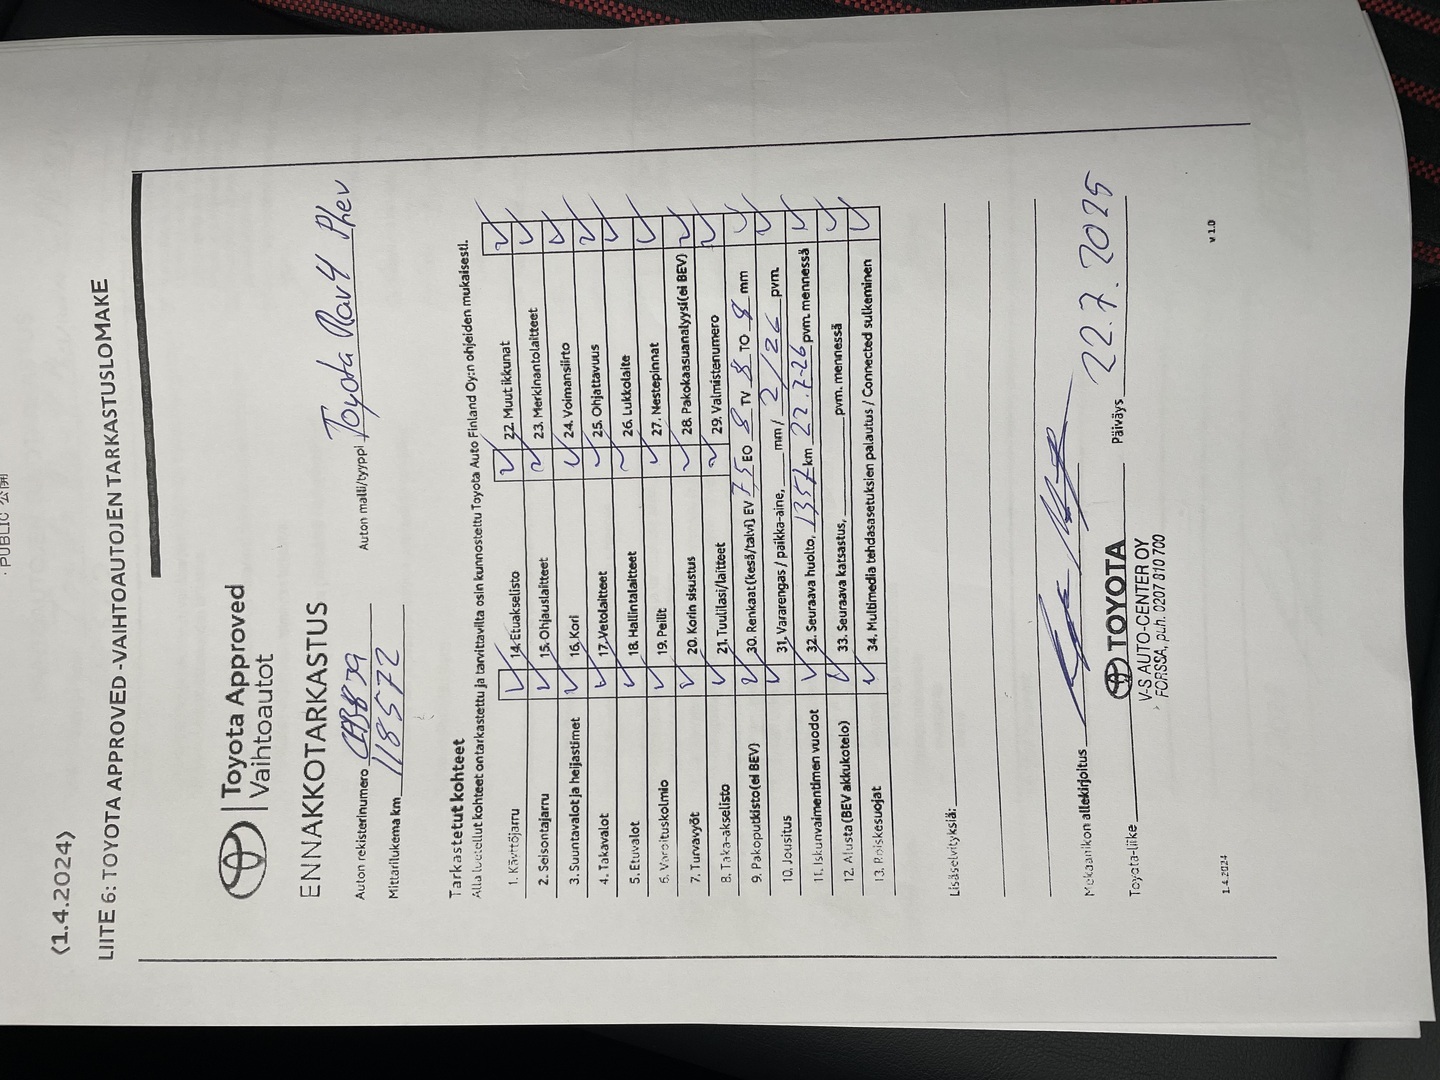 PUBLIC 公開
(1.4.2024)
LIITE 6: TOYOTA APPROVED -VAIHTOAUTOJEN TARKASTUSLOMAKE
Toyota Approved
Vaihtoautot
ENNAKKOTARKASTUS
Auton rekisterinumero Auton malli/tyyppi Toyota Rav4 Phev
Mittarilukema km 118572
Tarkastetut kohteet
Alla luetellut kohteet on tarkastettu ja tarvittavilta osin kunnostettu Toyota Auto Finland Oy:n ohjeiden mukaisesti.
1. Käyttöjarru ✓ 14. Etuakselisto ✓ 22. Muut ikkunat ✓
2. Seisontajarru ✓ 15. Ohjauslaitteet ✓ 23. Merkinantolaitteet ✓
3. Suuntavalot ja heijastimet ✓ 16. Kori ✓ 24. Voimansiirto ✓
4. Takavalot ✓ 17. Vetolaitteet ✓ 25. Ohjattavuus ✓
5. Etuvalot ✓ 18. Hallintalaitteet ✓ 26. Lukkolaite ✓
6. Varoituskolmio ✓ 19. Peilit ✓ 27. Nestepinnat ✓
7. Turvavyöt ✓ 20. Korin sisustus ✓ 28. Pakokaasuanalyysi (ei BEV) ✓
8. Taka-akselisto ✓ 21. Tuulilasi/laitteet ✓ 29. Valmistenumero ✓
9. Pakoputkisto (ei BEV) ✓ 30. Renkaat (kesä/talvi) EV 7,5 EO 8 TV 8 TO 8 mm ✓
10. Jousitus ✓ 31. Vararengas / paikka-aine, mm / 2/26 pvm. ✓
11. Iskunvaimentimen vuodot ✓ 32. Seuraava huolto, km 22.7-26 pvm. mennessä ✓
12. Alusta (BEV akkukotelo) ✓ 33. Seuraava katsastus, pvm. mennessä ✓
13. Roiskesuojat ✓ 34. Multimedia tehdasasetuksien palautus / Connected sulkeminen ✓
Lisäselvityksiä:
Mekaanikon allekirjoitus
Toyota-liike TOYOTA Päiväys 22.7.2025
V-S AUTO-CENTER OY
FORSSA, puh. 0207 810 700
1.4.2024 v 1.0